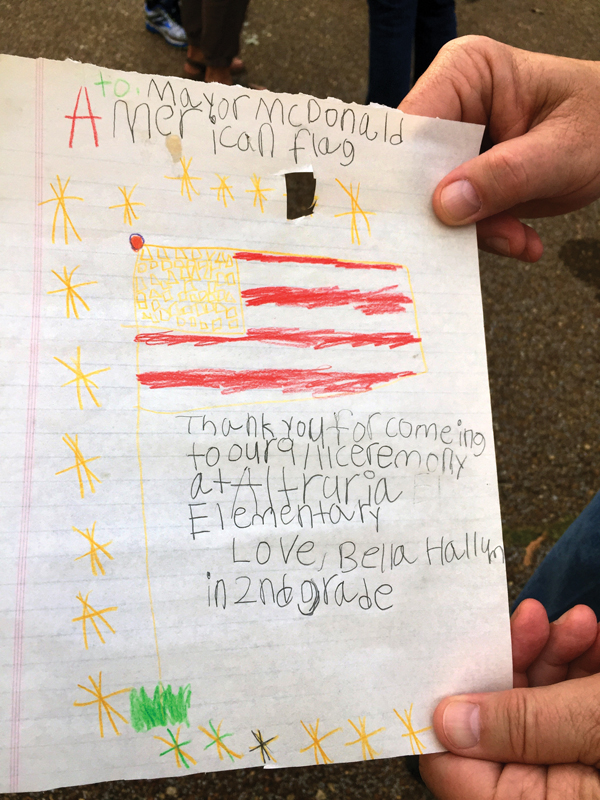 to: Mayor McDonald
American flag
Thank you for comeing
to our 9/11 ceremony
at Altruria
Elementary
Love, Bella Hallum
in 2nd grade